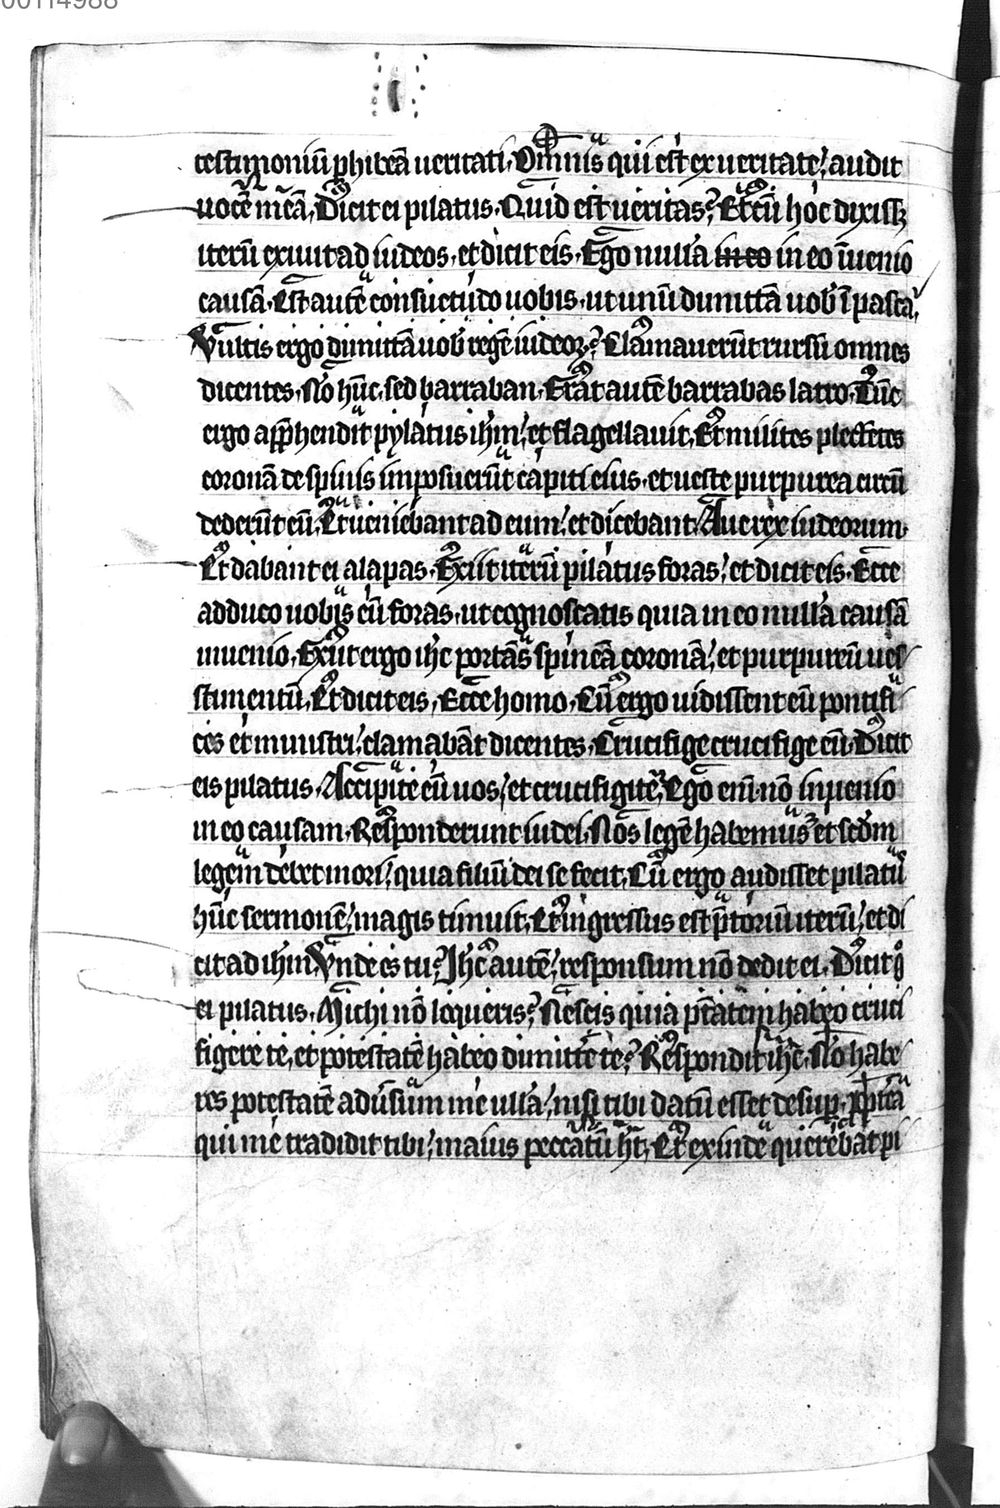 00114988
testimoniū phibeā ueritati. Omnis qui est ex ueritate, audit
uocē meā. Dicit ei pilatus. Quid est ueritas? Et cū hoc dixiss;
iterū exiuit ad iudeos, et dicit eis. Ego nullā in eo in eo īuenio
causā. Est autē consuetudo uobis, ut unū dimittā uob ī pasca.
Vultis ergo dimittā uob regē iudeoꝝ? Clamauerūt rursū omnes
dicentes. Nō hūc, sed barraban. Erat autē barrabas latro. Tūc
ergo app̄hendit pylatus ihm, et flagellauit. Et milites plectētes
coronā de spinis imposuerūt capiti eius, et ueste purpurea circū
dederūt eū. Et ueniebant ad eum, et dicebant. Aue rex iudeorum.
Et dabant ei alapas. Exiit iterū pilatus foras, et dicit eis. Ecce
adduco uobis eū foras, ut cognoscatis quia in eo nullā causā
inuenio. Exiit ergo ihc portās spineā coronā, et purpureū ues
timentū. Et dicit eis. Ecce homo. Cū ergo uidissent eū pontifi
ces et ministri, clamabāt dicentes. Crucifige crucifige eū. Dicit
eis pilatus. Accipite eū uos, et crucifigite. Ego enī nō inuenio
in eo causam. Responderunt iudei. Nos legē habemus, et scdm
legem debet mori, quia filiū dei se fecit. Cū ergo audisset pilatus
hūc sermonē, magis timuit. Et ingressus est p̄toriū iterū, et di
cit ad ihm. Vnde es tu? Ihc autē, responsum nō dedit ei. Dicit g°
ei pilatus. Michi nō loqueris? Nescis quia p̄tatem habeo cruci
figere te, et potestatē habeo dimittē te? Respondit ihc. Nō habe
res potestatē aduersum me ullā, nisi tibi datū esset desup. ꝓpt̄ea
qui me tradidit tibi, maius peccatū ht. Et exinde querebat pi